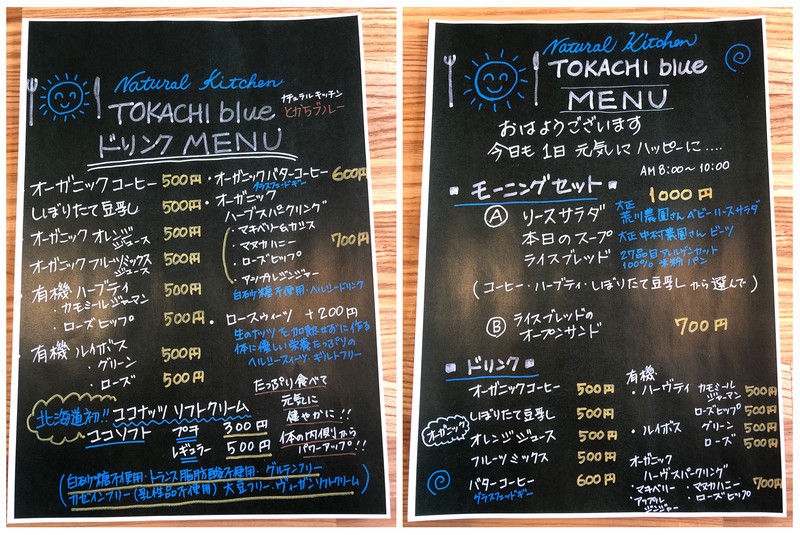 Natural Kitchen
TOKACHI blue
ナチュラルキッチン
とかちブルー
ドリンク MENU
オーガニックコーヒー 500円
しぼりたて豆乳 500円
オーガニック オレンジジュース 500円
オーガニック フルーツミックスジュース 500円
有機 ハーブティ
・カモミールジャーマン 500円
・ローズヒップ 500円
有機 ルイボス
・グリーン 500円
・ローズ 500円
・オーガニックバターコーヒー 600円
グラスフェッドギー
・オーガニック
ハーブスパークリング
・マキベリー&カシス
・マヌカハニー
・ローズヒップ
・アップルジンジャー
700円
白砂糖不使用・ヘルシードリンク
・ロースウィーツ +200円
生のナッツを加熱せずに作る
体に優しい栄養たっぷりの
ヘルシースイーツ・ギルトフリー
北海道初!! ココナッツ ソフトクリーム
ココソフト プチ 300円
レギュラー 500円
たっぷり食べて
元気に
健やかに!!
体の内側から
パワーアップ!!
(白砂糖不使用・トランス脂肪酸不使用・グルテンフリー
カゼインフリー(乳性品不使用)大豆フリー・ヴィーガンソフトクリーム)
Natural Kitchen
TOKACHI blue
MENU
おはようございます
今日も1日 元気に ハッピーに....
AM 8:00~10:00
モーニングセット
1000円
A リースサラダ 大正 荒川農園さん ベビーリーフサラダ
本日のスープ 大正 中村農園さん ビーツ
ライスブレッド 27品目アレルゲンカット
100% 米粉パン
(コーヒー・ハーブティ・しぼりたて豆乳 から選んで)
B ライスブレッドの
オープンサンド 700円
ドリンク
オーガニック
オーガニックコーヒー 500円
しぼりたて豆乳 500円
オレンジジュース 500円
フルーツミックス 500円
バターコーヒー 600円
グラスフェッドギー
有機
・ハーヴティ カモミールジャーマン 500円
ローズヒップ 500円
・ルイボス グリーン 500円
ローズ 500円
オーガニック
ハーヴスパークリング
・マキベリー・マヌカハニー 700円
・アップルジンジャー ・ローズヒップ